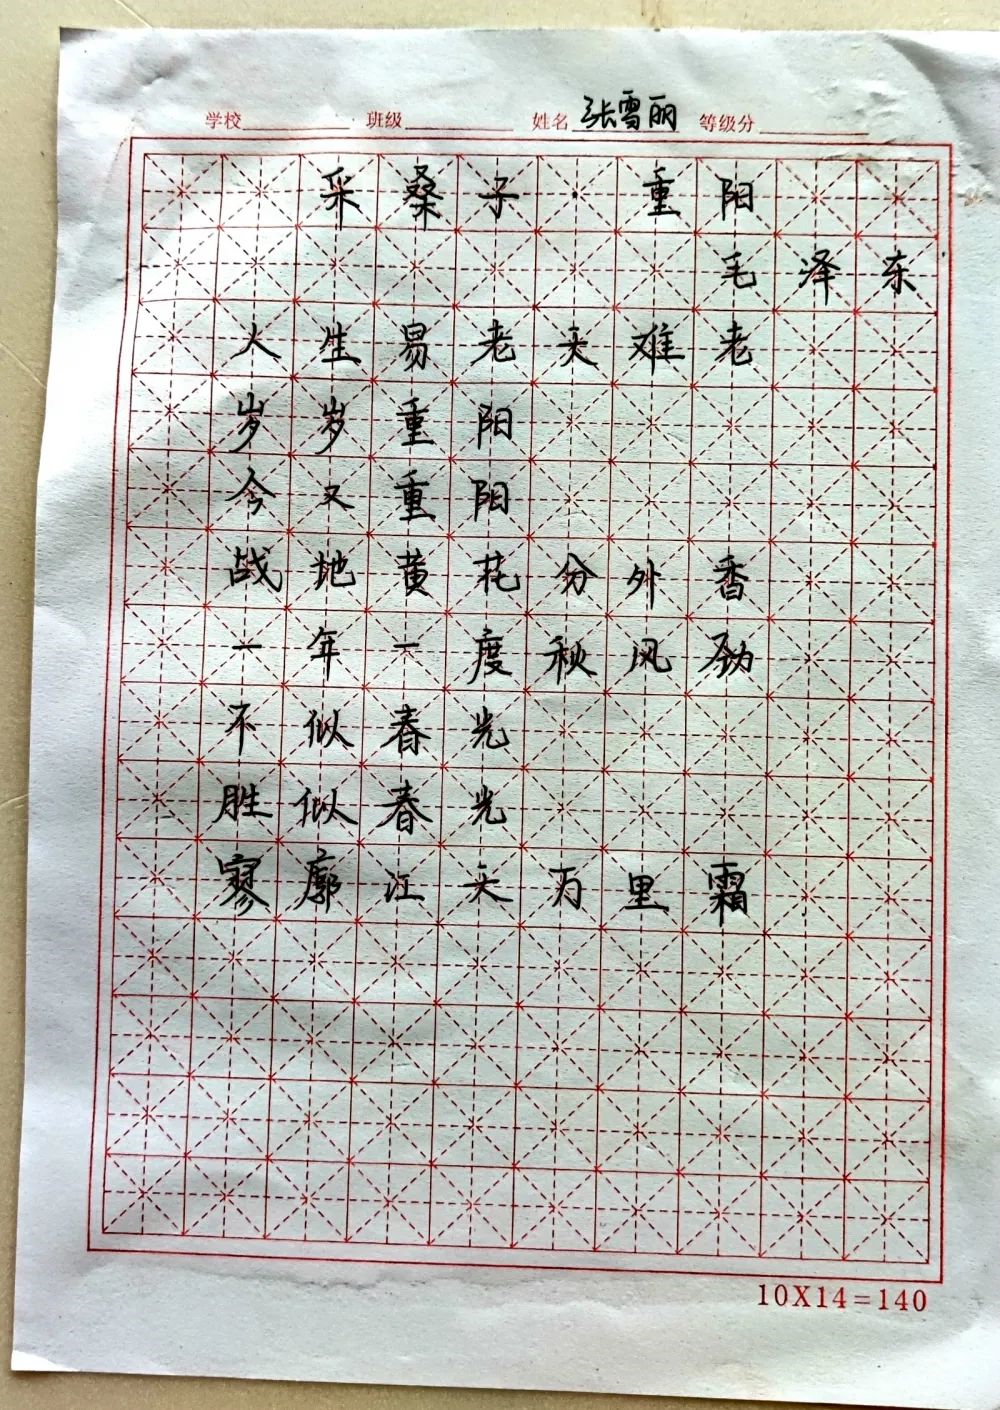 学校 班级 姓名 张雪丽 等级分
采桑子·重阳
毛泽东
人生易老天难老
岁岁重阳
今又重阳
战地黄花分外香
一年一度秋风劲
不似春光
胜似春光
寥廓江天万里霜
10X14=140